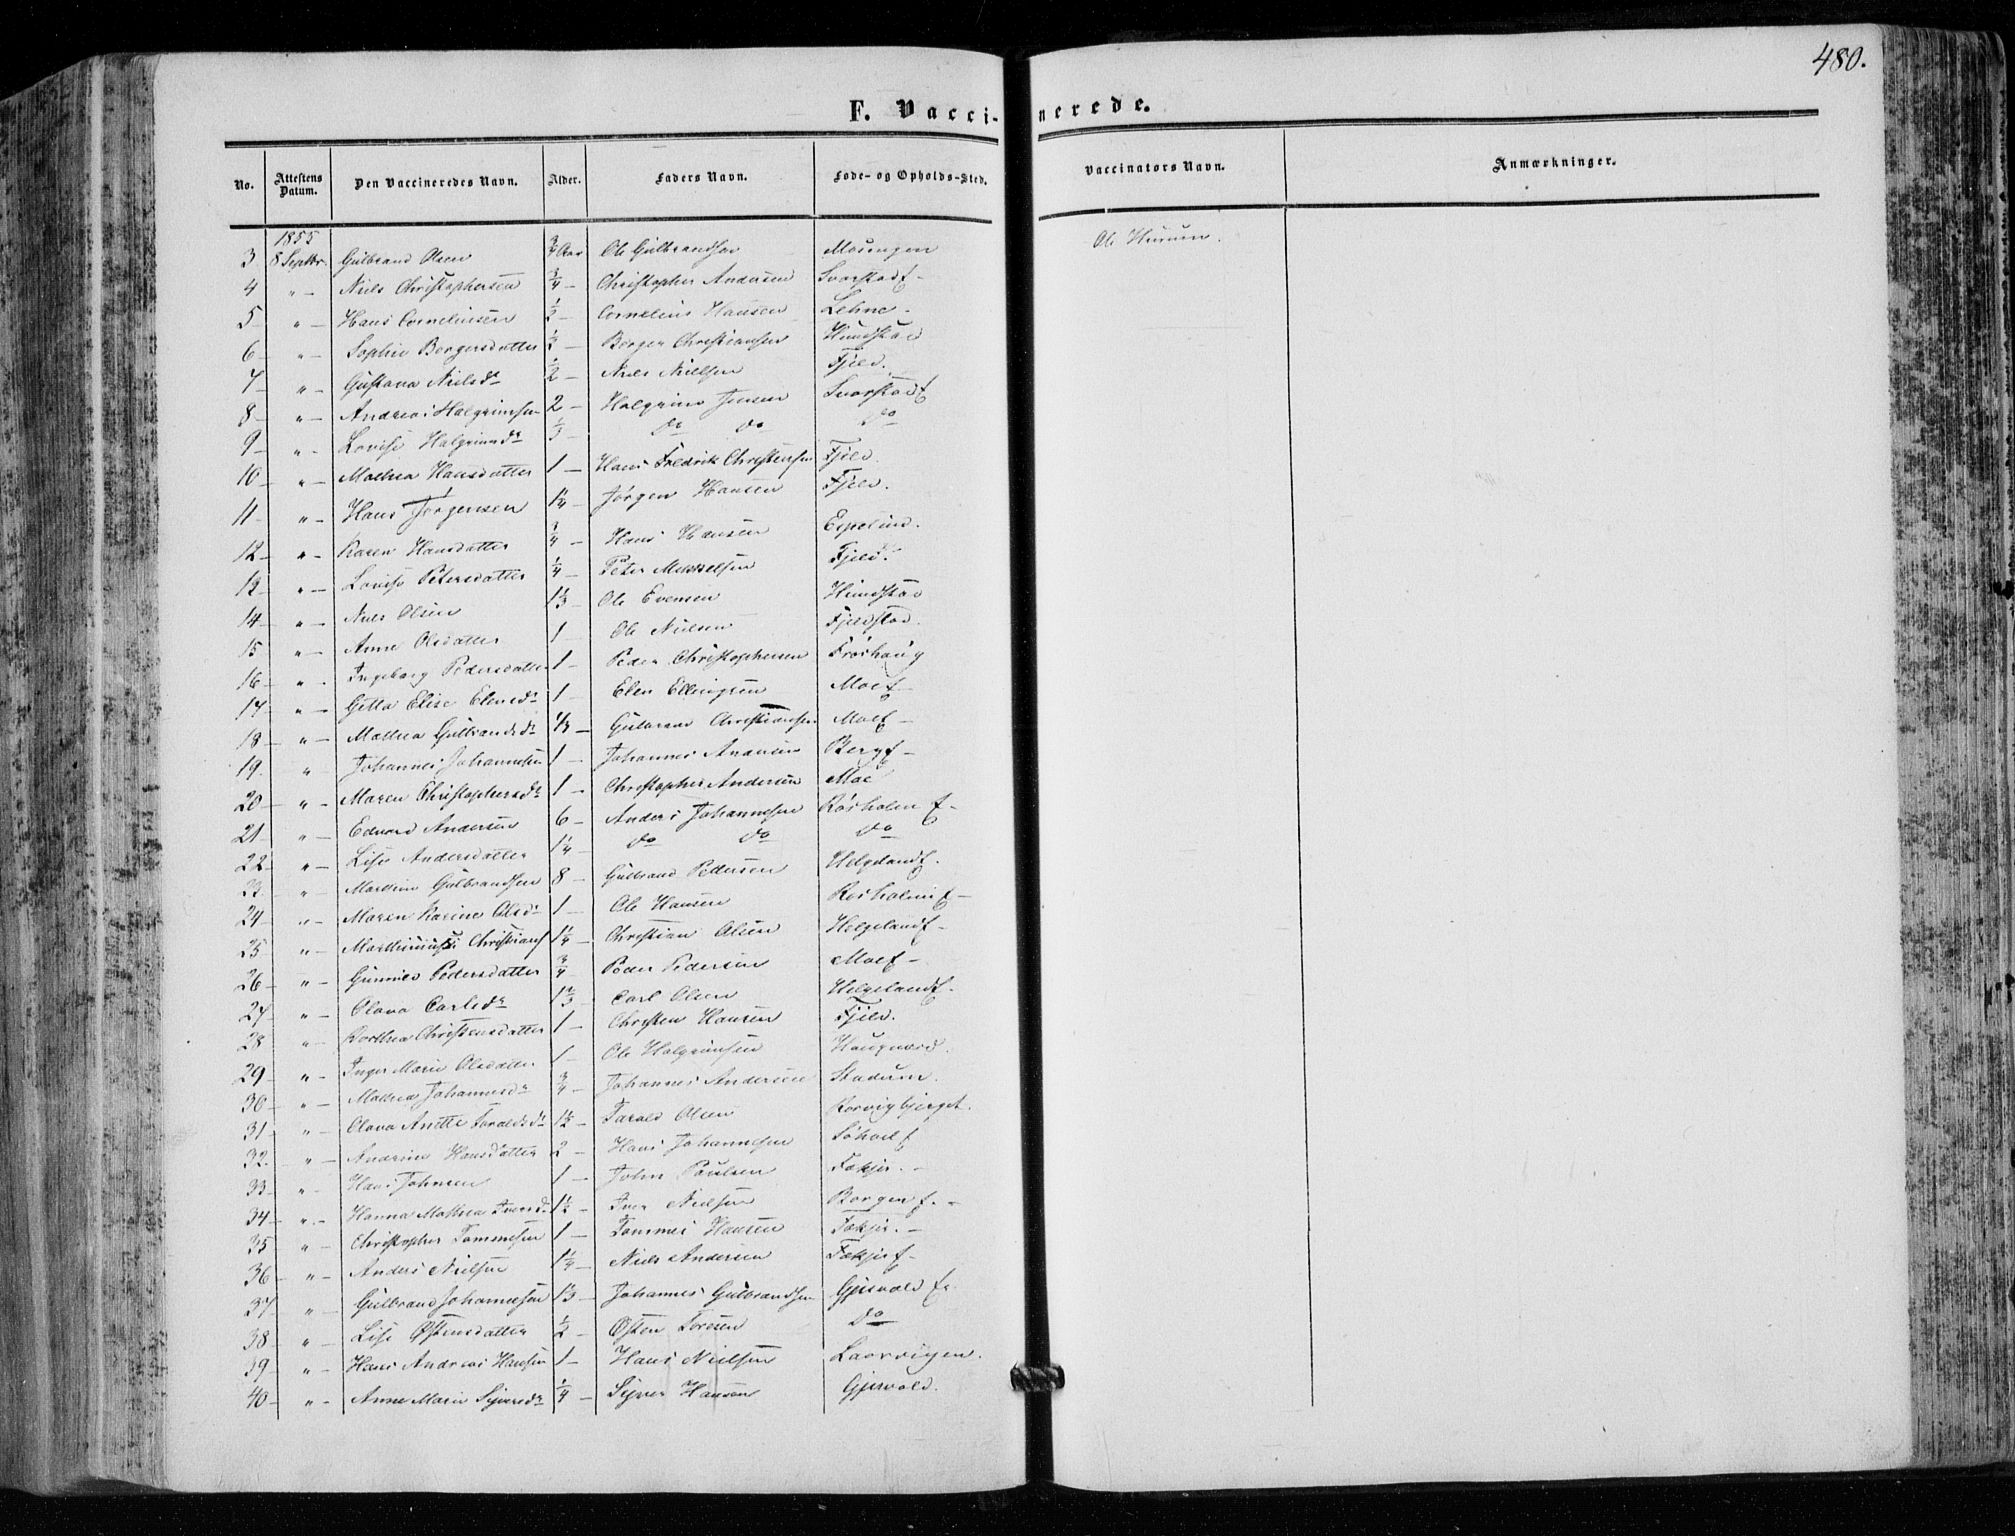 480.
F. Vaccinerede.
No. Attestens Datum. Den Vaccineredes Navn. Alder. Faders Navn. Føde- og Opholds-Sted. Vaccinators Navn. Anmærkninger.
1855
3 8 Septbr. Gulbrand Olsen 3/4 Aar Ole Gulbrandsen Mosengen Ole Hurum.
4 " Niels Christophersen 3/4 Christopher Andersen Svarstad
5 " Hans Corneliusen 1/2 Cornelius Hansen Lehne
6 " Sophie Borgersdatter 1/2 Borger Christiansen Hundstad
7 " Gustava Nielsdr 1/2 Niels Nielsen Fjeld.
8 " Andreas Halgrimsen 2 Halgrim Jensen Svarstad
9 " Lovise Halgrimsdr 1/3 do do do
10 " Mathea Hansdatter 1 Hans Fredrik Christensen Fjeld.
11 " Hans Jørgensen 1 1/4 Jørgen Hansen Fjeld.
12 " Karen Hansdatter 3/4 Hans Hansen Espelund.
13 " Lovise Petersdatter 1/4 Peter Fjeld.
14 " Niels Olsen 1 1/3 Ole Evensen Hundstad
15 " Anne Olsdatter 1 Ole Nielsen Fjeldstad.
16 " Ingeborg Pedersdatter 1 Peder Christophersen Frøshaug
17 " Getta Elise Elensdr 1 Elen Ellingsen Moe
18 " Mathea Gulbrandsdr Gulbrand Christiansen Moe
19 " Johannes Johannesen 1 Johannes Andersen Berg
20 " Maren Christophersdr 1 Christopher Andersen Moe
21 " Edvard Andersen 6 Anders Johannesen Rosholm
22 " Lise Andersdatter 1 1/4 do do do
23 " Gulbrandsen 8 Gulbrand Pedersen Helgeland
24 " Maren Karine Olsdr 1 Ole Hansen Rosholm
25 " Christians 1 1/4 Christian Olsen Helgeland
26 " Gunnild Pedersdatter 3/4 Peder Pedersen Moe
27 " Olava Carlsdr 1 2/3 Carl Olsen Helgeland
28 " Dorthea Christensdatter 1 Christen Hansen Fjeld.
29 " Inger Marie Olsdatter 1 Ole Halgrimsen
30 " Mathea Johannesdr 3/4 Johannes Andersen Stadum.
31 " Olava Anette Taraldsdr 1 1/2 Tarald Olsen
32 " Andrine Hansdatter 2 Hans Johannesen Søhoel
33 " Hans Johnsen 1 John Poulsen
34 " Hanna Mathea Iversdr 1 1/2 Iver Nielsen Borgen
35 " Christopher Tommesen 1 Tommes Hansen
36 " Anders Nielsen 1 1/4 Niels Andersen
37 " Gulbrand Johannesen 1 1/3 Johannes Gulbrandsen Gjesvold
38 " Lise Østensdatter 1/2 Østen Toresen do
39 " Hans Andreas Hansen 1 Hans Nielsen
40 " Anne Marie Syversdr 1/4 Syver Hansen Gjesvold.